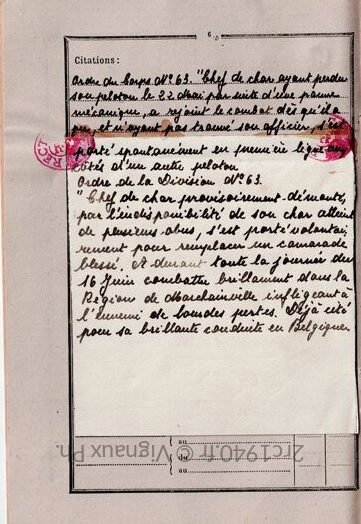 6
Citations :
Ordre du Corps N° 63. "Chef de char ayant perdu
son peloton le 22 Mai par suite d'une panne
mécanique, a rejoint le combat dès qu'il a
pu, et n'ayant pas trouvé son officier, s'est
porté spontanément en première ligne aux
côtés d'un autre peloton
Ordre de la Division N° 63.
"Chef de char provisoirement démonté,
par l'indisponibilité de son char atteint
de plusieurs obus, s'est porté volontai
rement pour remplacer un camarade
blessé. A durant toute la journée du
16 Juin combattu brillament dans la
Région de Marchainville infligeant à
l'ennemi de lourdes pertes. Déjà cité
pour sa brillante conduite en Belgique"
au
du
au
2rc1940.fr © Vignaux Ph.